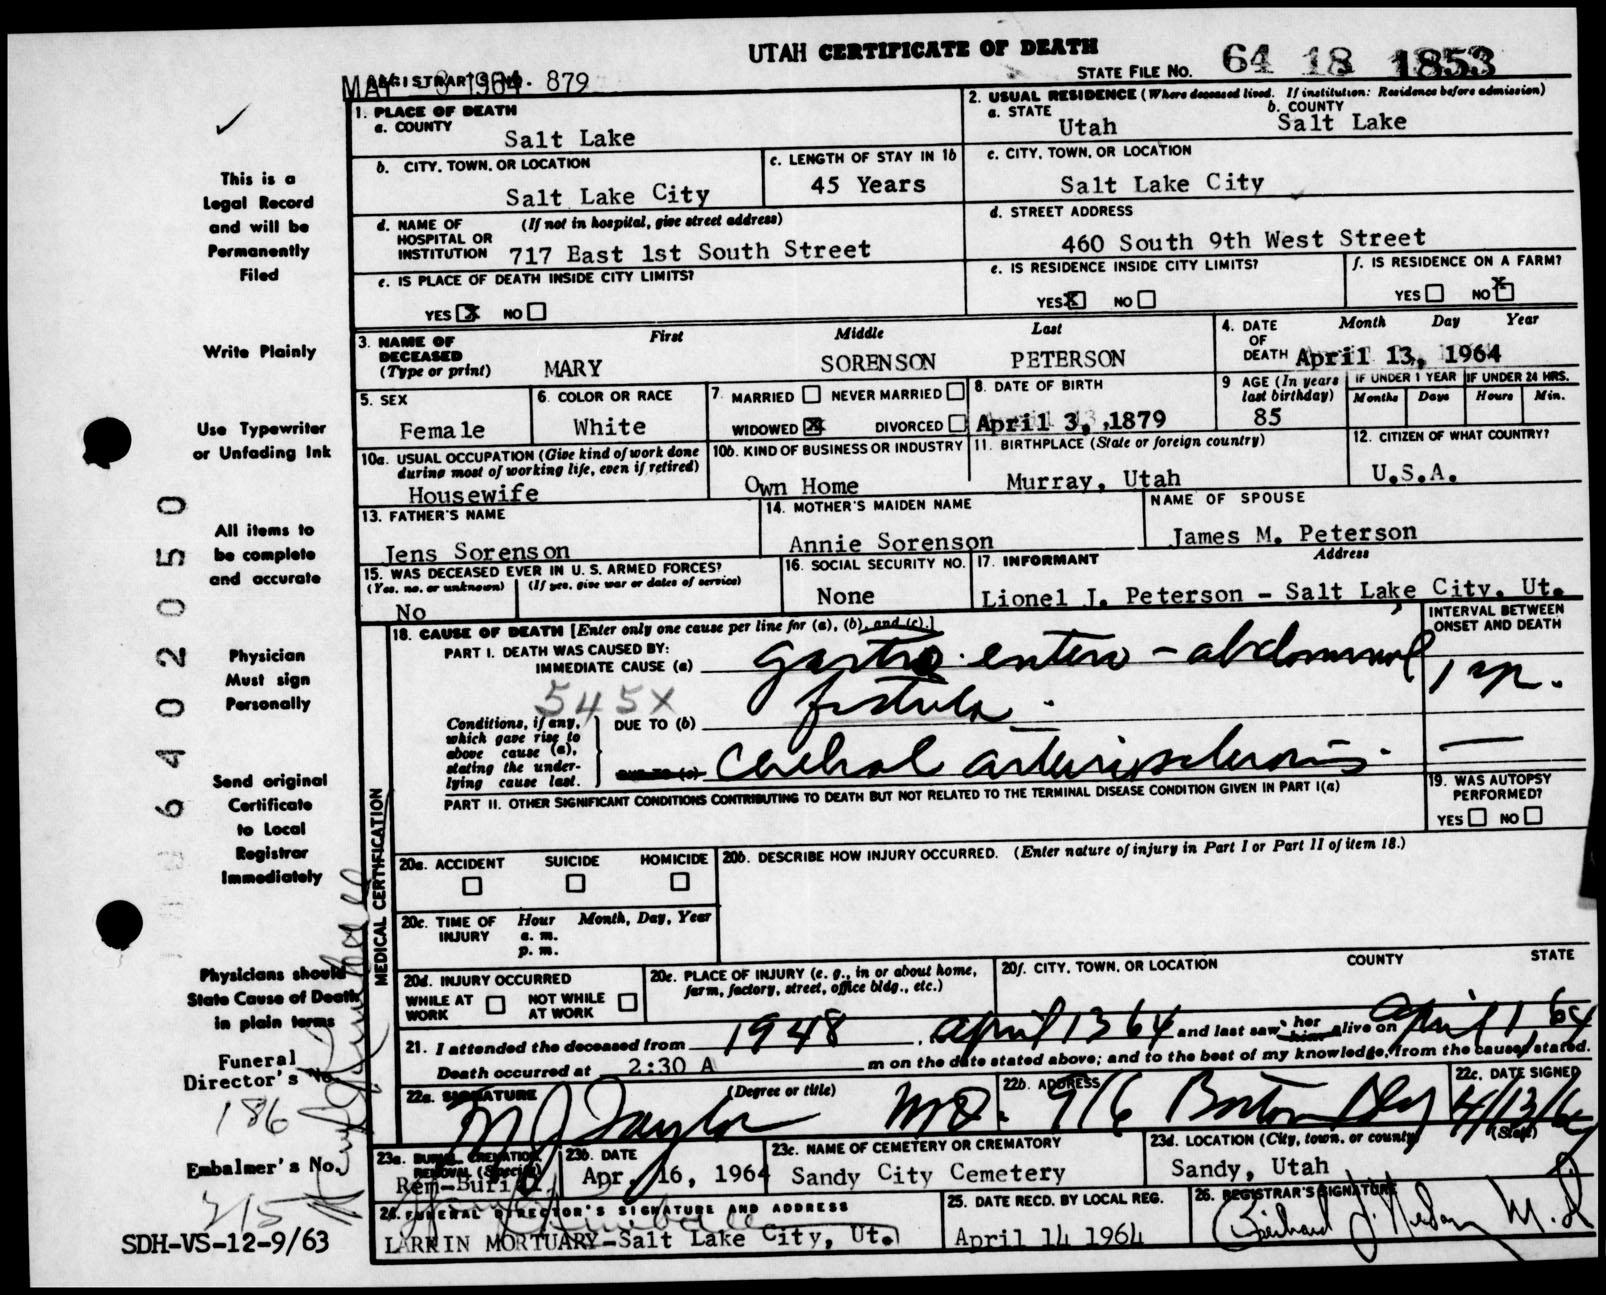 UTAH CERTIFICATE OF DEATH
STATE FILE NO. 64 18 1853
REGISTRAR'S NO. 879
MAY 3 1964
1. PLACE OF DEATH
a. COUNTY
Salt Lake
2. USUAL RESIDENCE (Where deceased lived. If institution: Residence before admission)
a. STATE
Utah
b. COUNTY
Salt Lake
b. CITY, TOWN, OR LOCATION
Salt Lake City
c. LENGTH OF STAY IN 1b
45 Years
c. CITY, TOWN, OR LOCATION
Salt Lake City
d. NAME OF HOSPITAL OR INSTITUTION
(If not in hospital, give street address)
717 East 1st South Street
d. STREET ADDRESS
460 South 9th West Street
e. IS PLACE OF DEATH INSIDE CITY LIMITS?
YES X NO
e. IS RESIDENCE INSIDE CITY LIMITS?
YES X NO
f. IS RESIDENCE ON A FARM?
YES NO X
3. NAME OF DECEASED (Type or print)
First Middle Last
MARY SORENSON PETERSON
4. DATE OF DEATH
Month Day Year
April 13, 1964
5. SEX
Female
6. COLOR OR RACE
White
7. MARRIED NEVER MARRIED
WIDOWED X DIVORCED
8. DATE OF BIRTH
April 3, 1879
9 AGE (In years last birthday)
85
IF UNDER 1 YEAR
Months Days
IF UNDER 24 HRS.
Hours Min.
10a. USUAL OCCUPATION (Give kind of work done during most of working life, even if retired)
Housewife
10b. KIND OF BUSINESS OR INDUSTRY
Own Home
11. BIRTHPLACE (State or foreign country)
Murray, Utah
12. CITIZEN OF WHAT COUNTRY?
U.S.A.
13. FATHER'S NAME
Jens Sorenson
14. MOTHER'S MAIDEN NAME
Annie Sorenson
NAME OF SPOUSE
James M. Peterson
15. WAS DECEASED EVER IN U. S. ARMED FORCES?
(Yes, no, or unknown) (If yes, give war or dates of service)
No
16. SOCIAL SECURITY NO.
None
17. INFORMANT Address
Lionel J. Peterson - Salt Lake City, Ut.
MEDICAL CERTIFICATION
18. CAUSE OF DEATH [Enter only one cause per line for (a), (b), and (c).]
INTERVAL BETWEEN ONSET AND DEATH
PART I. DEATH WAS CAUSED BY:
IMMEDIATE CAUSE (a) gastro-entero-abdominal
fistula.
545X
Conditions, if any, which gave rise to above cause (a), stating the underlying cause last.
DUE TO (b)
DUE TO (c) cerebral arteriosclerosis.
PART II. OTHER SIGNIFICANT CONDITIONS CONTRIBUTING TO DEATH BUT NOT RELATED TO THE TERMINAL DISEASE CONDITION GIVEN IN PART I(a)
19. WAS AUTOPSY PERFORMED?
YES NO
20a. ACCIDENT SUICIDE HOMICIDE
20b. DESCRIBE HOW INJURY OCCURRED. (Enter nature of injury in Part I or Part II of item 18.)
20c. TIME OF INJURY
Hour Month, Day, Year
a. m.
p. m.
20d. INJURY OCCURRED
WHILE AT WORK NOT WHILE AT WORK
20e. PLACE OF INJURY (e. g., in or about home, farm, factory, street, office bldg., etc.)
20f. CITY, TOWN, OR LOCATION COUNTY STATE
21. I attended the deceased from 1948, April 13 64 and last saw her him alive on April 1, 64
Death occurred at 2:30 A m on the date stated above; and to the best of my knowledge, from the causes stated.
22a. SIGNATURE (Degree or title)
M J Taylor M.D.
22b. ADDRESS
916 Boston Bldg
22c. DATE SIGNED
4/13/64
23a. BURIAL, CREMATION REMOVAL (Specify)
Rem-Burial
23b. DATE
Apr. 16, 1964
23c. NAME OF CEMETERY OR CREMATORY
Sandy City Cemetery
23d. LOCATION (City, town, or county) (State)
Sandy, Utah
24. FUNERAL DIRECTOR'S SIGNATURE AND ADDRESS
LARKIN MORTUARY-Salt Lake City, Ut.
25. DATE RECD. BY LOCAL REG.
April 14 1964
26. REGISTRAR'S SIGNATURE
M.D
This is a
Legal Record
and will be
Permanently
Filed
Write Plainly
Use Typewriter
or Unfading Ink
All items to
be complete
and accurate
Physician
Must sign
Personally
Send original
Certificate
to Local
Registrar
Immediately
Physicians should
State Cause of Death
in plain terms
Funeral
Director's No.
186
Embalmer's No.
215
SDH-VS-12-9/63
6402050